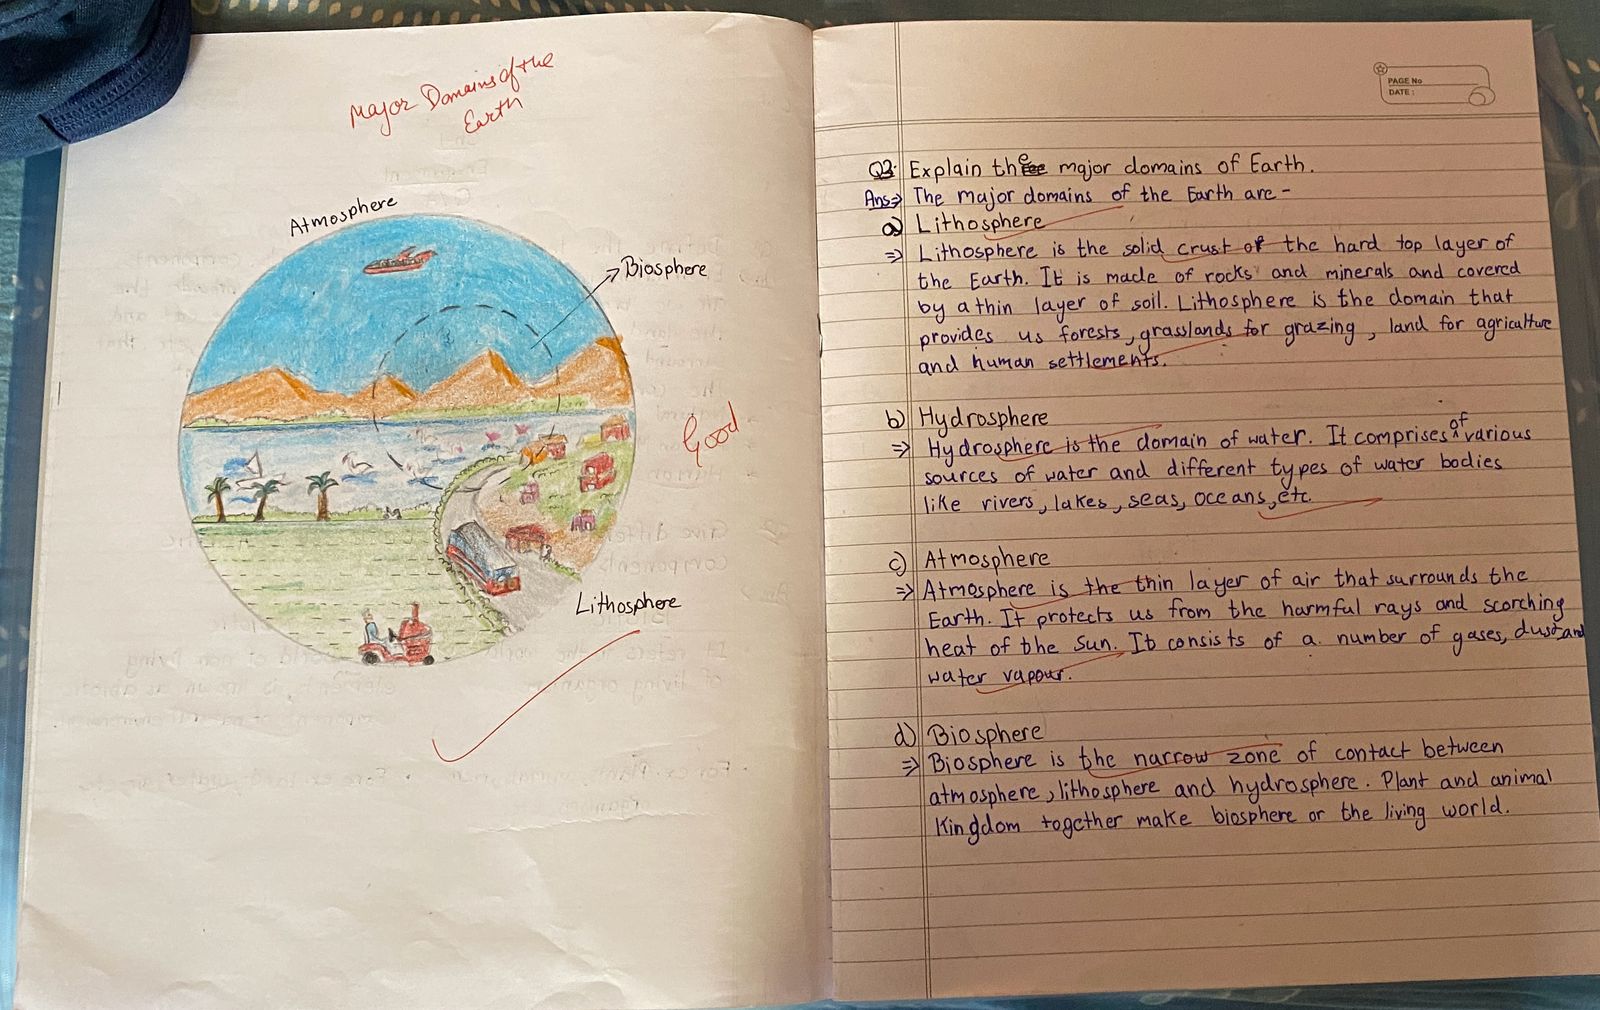 Major Domains of the
Earth
Atmosphere
Biosphere
Good
Lithosphere
PAGE No
DATE :
Q3. Explain the major domains of Earth.
Ans⇒ The major domains of the Earth are -
a) Lithosphere
⇒ Lithosphere is the solid crust of the hard top layer of
the Earth. It is made of rocks and minerals and covered
by a thin layer of soil. Lithosphere is the domain that
provides us forests, grasslands for grazing, land for agriculture
and human settlements.
b) Hydrosphere
⇒ Hydrosphere is the domain of water. It comprises of various
sources of water and different types of water bodies
like rivers, lakes, seas, oceans, etc.
c) Atmosphere
⇒ Atmosphere is the thin layer of air that surrounds the
Earth. It protects us from the harmful rays and scorching
heat of the Sun. It consists of a number of gases, dust and
water vapour.
d) Biosphere
⇒ Biosphere is the narrow zone of contact between
atmosphere, lithosphere and hydrosphere. Plant and animal
Kingdom together make biosphere or the living world.